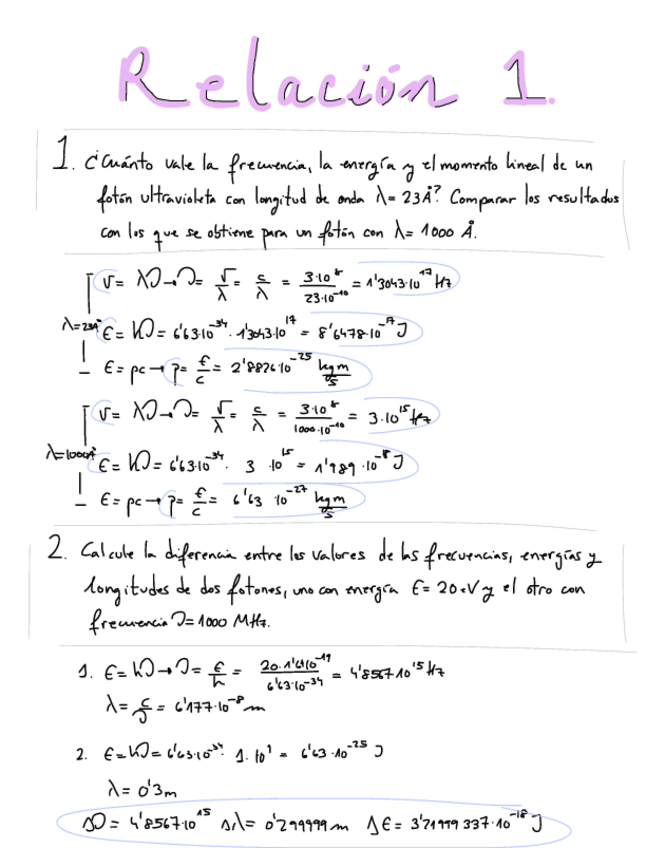 Relación 1.
1. ¿Cuánto vale la frecuencia, la energía y el momento lineal de un
fotón ultravioleta con longitud de onda λ= 23Å? Comparar los resultados
con los que se obtiene para un fotón con λ= 1000 Å.
v= λν→ν= v/λ = c/λ = 3·10⁸/23·10⁻¹⁰ = 1'3043·10¹⁷ Hz
λ=23Å E= hν= 6'63·10⁻³⁴·1'3043·10¹⁷ = 8'6478·10⁻¹⁷ J
E= pc→ p= E/c = 2'8826·10⁻²⁵ kg m/s
v= λν→ν= v/λ = c/λ = 3·10⁸/1000·10⁻¹⁰ = 3·10¹⁵ Hz
λ=1000Å E= hν= 6'63·10⁻³⁴· 3 ·10¹⁵ = 1'989·10⁻⁸ J
E= pc→ p= E/c = 6'63 ·10⁻²⁷ kg m/s
2. Calcule la diferencia entre los valores de las frecuencias, energías y
longitudes de dos fotones, uno con energía E= 20eV y el otro con
frecuencia ν= 1000 MHz.
1. E= hν→ν= E/h = 20·1'6·10⁻¹⁹/6'63·10⁻³⁴ = 4'8567·10¹⁵ Hz
λ= c/ν = 6'177·10⁻⁸ m
2. E=hν= 6'63·10⁻³⁴· 1·10⁹ = 6'63·10⁻²⁵ J
λ= 0'3m
Δν= 4'8567·10¹⁵ Δλ= 0'299999m ΔE= 3'21999337·10⁻¹⁸ J